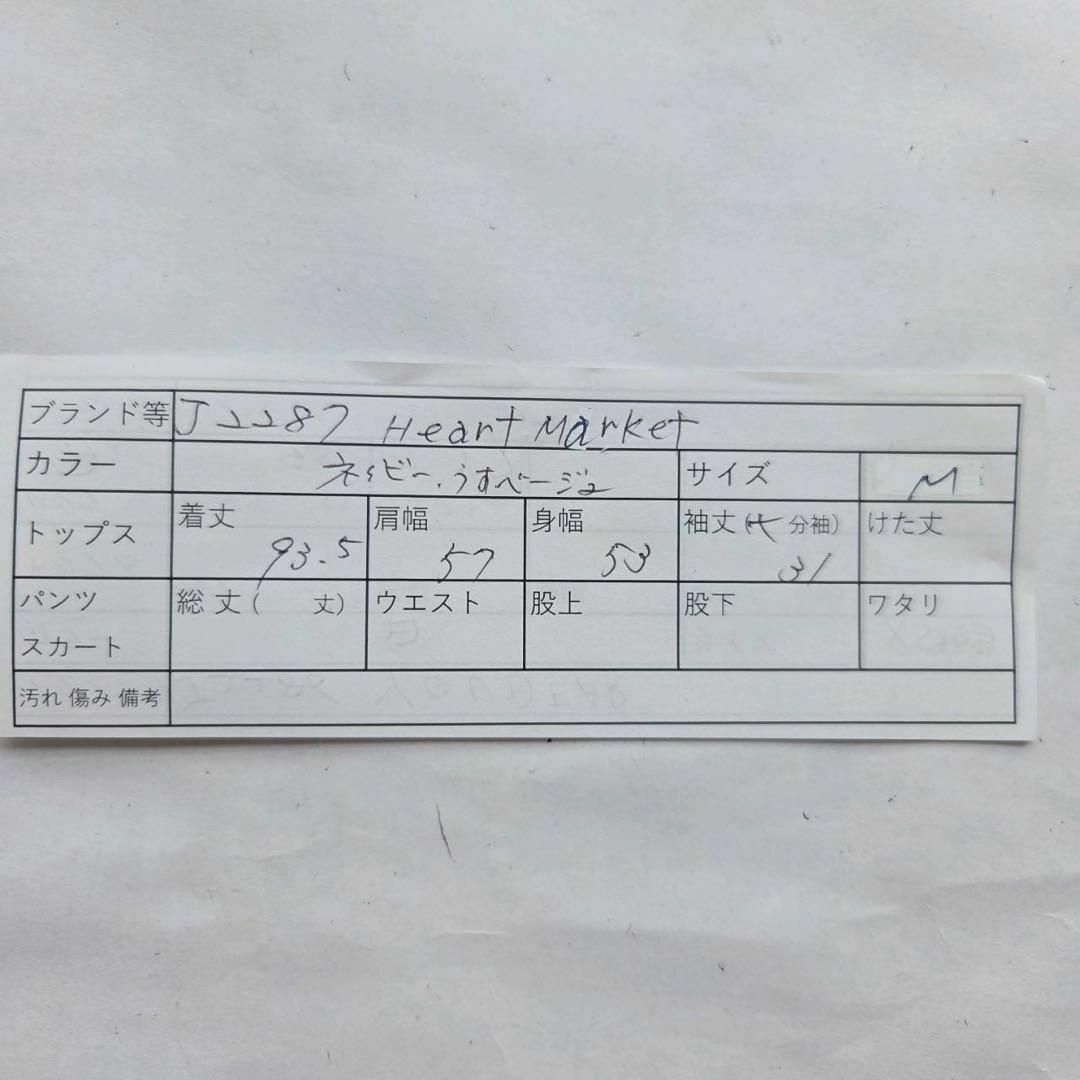 ブランド等 J2287 Heart Market
カラー ネイビー、うすベージュ サイズ M
トップス 着丈 93.5 肩幅 57 身幅 53 袖丈(七分袖) 31 けた丈
パンツ スカート 総丈( 丈) ウエスト 股上 股下 ワタリ
汚れ 傷み 備考